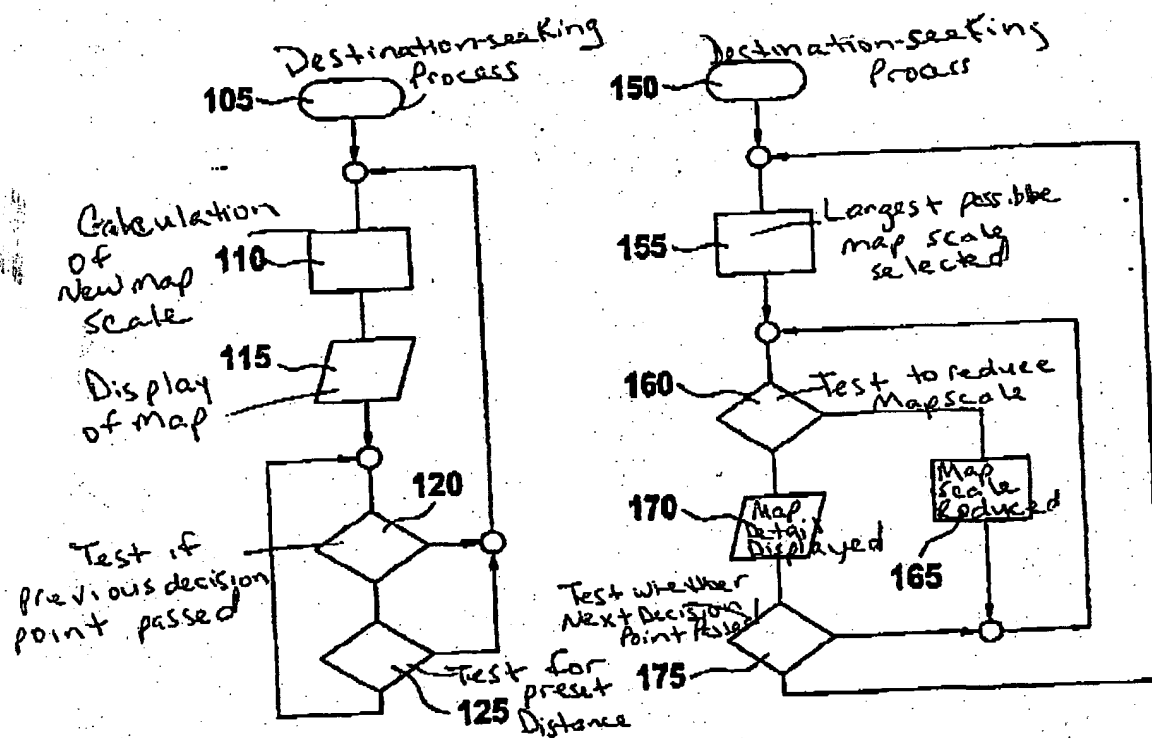 Destination-seeking
Process
105
Calculation
of
New Map
Scale
110
115
Display
of Map
120
Test if
previous decision
point passed
Test for
preset
Distance
125
Destination-seeking
Process
150
Largest possible
map scale
selected
155
160
Test to reduce
Mapscale
Map
Scale
Reduced
165
170
Map
Details
Displayed
Test whether
Next Decision
Point Passed
175